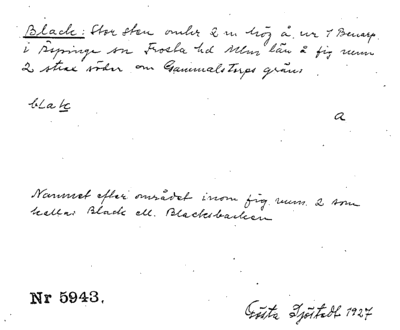 Black: Stor sten omkr 2 m hög å nr 1 Benarp
i Äspinge sn Frosta hd Mlm län å fig num
2 strax söder om Gammalstorps gräns
black
a
Namnet efter området inom fig. num. 2 som
kallas Black ell. Blacksbacken
Nr 5943.
Gösta Sjöstedt 1927